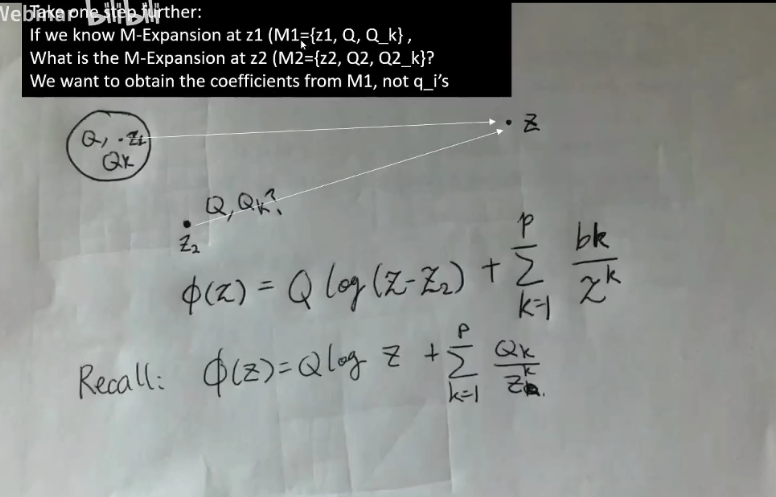 Webinar bilibili
Take one step further:
If we know M-Expansion at z1 (M1={z1, Q, Q_k} ,
What is the M-Expansion at z2 (M2={z2, Q2, Q2_k}?
We want to obtain the coefficients from M1, not q_i’s
Q, · z₁
Qk
· z
Q, Qk?
z₂
ϕ(z) = Q log (z-z₂) + \sum_{k=1}^{p} \frac{bk}{z^k}
Recall: ϕ(z) = Q log z + \sum_{k=1}^{p} \frac{Qk}{z^k}.